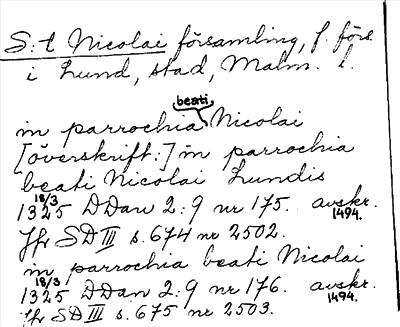 S:t Nicolai församling, f. förs.
i Lund, stad, Malm. l.
beati
in parrochia Nicolai
[överskrift:] in parrochia
beati Nicolai Lundis
18/3
1325 DDan 2:9 nr 175. avskr. 1494.
Jfr SD III s. 674 nr 2502.
in parrochia beati Nicolai
18/3
1325 DDan 2:9 nr 176. avskr. 1494.
Jfr SD III s. 675 nr 2503.